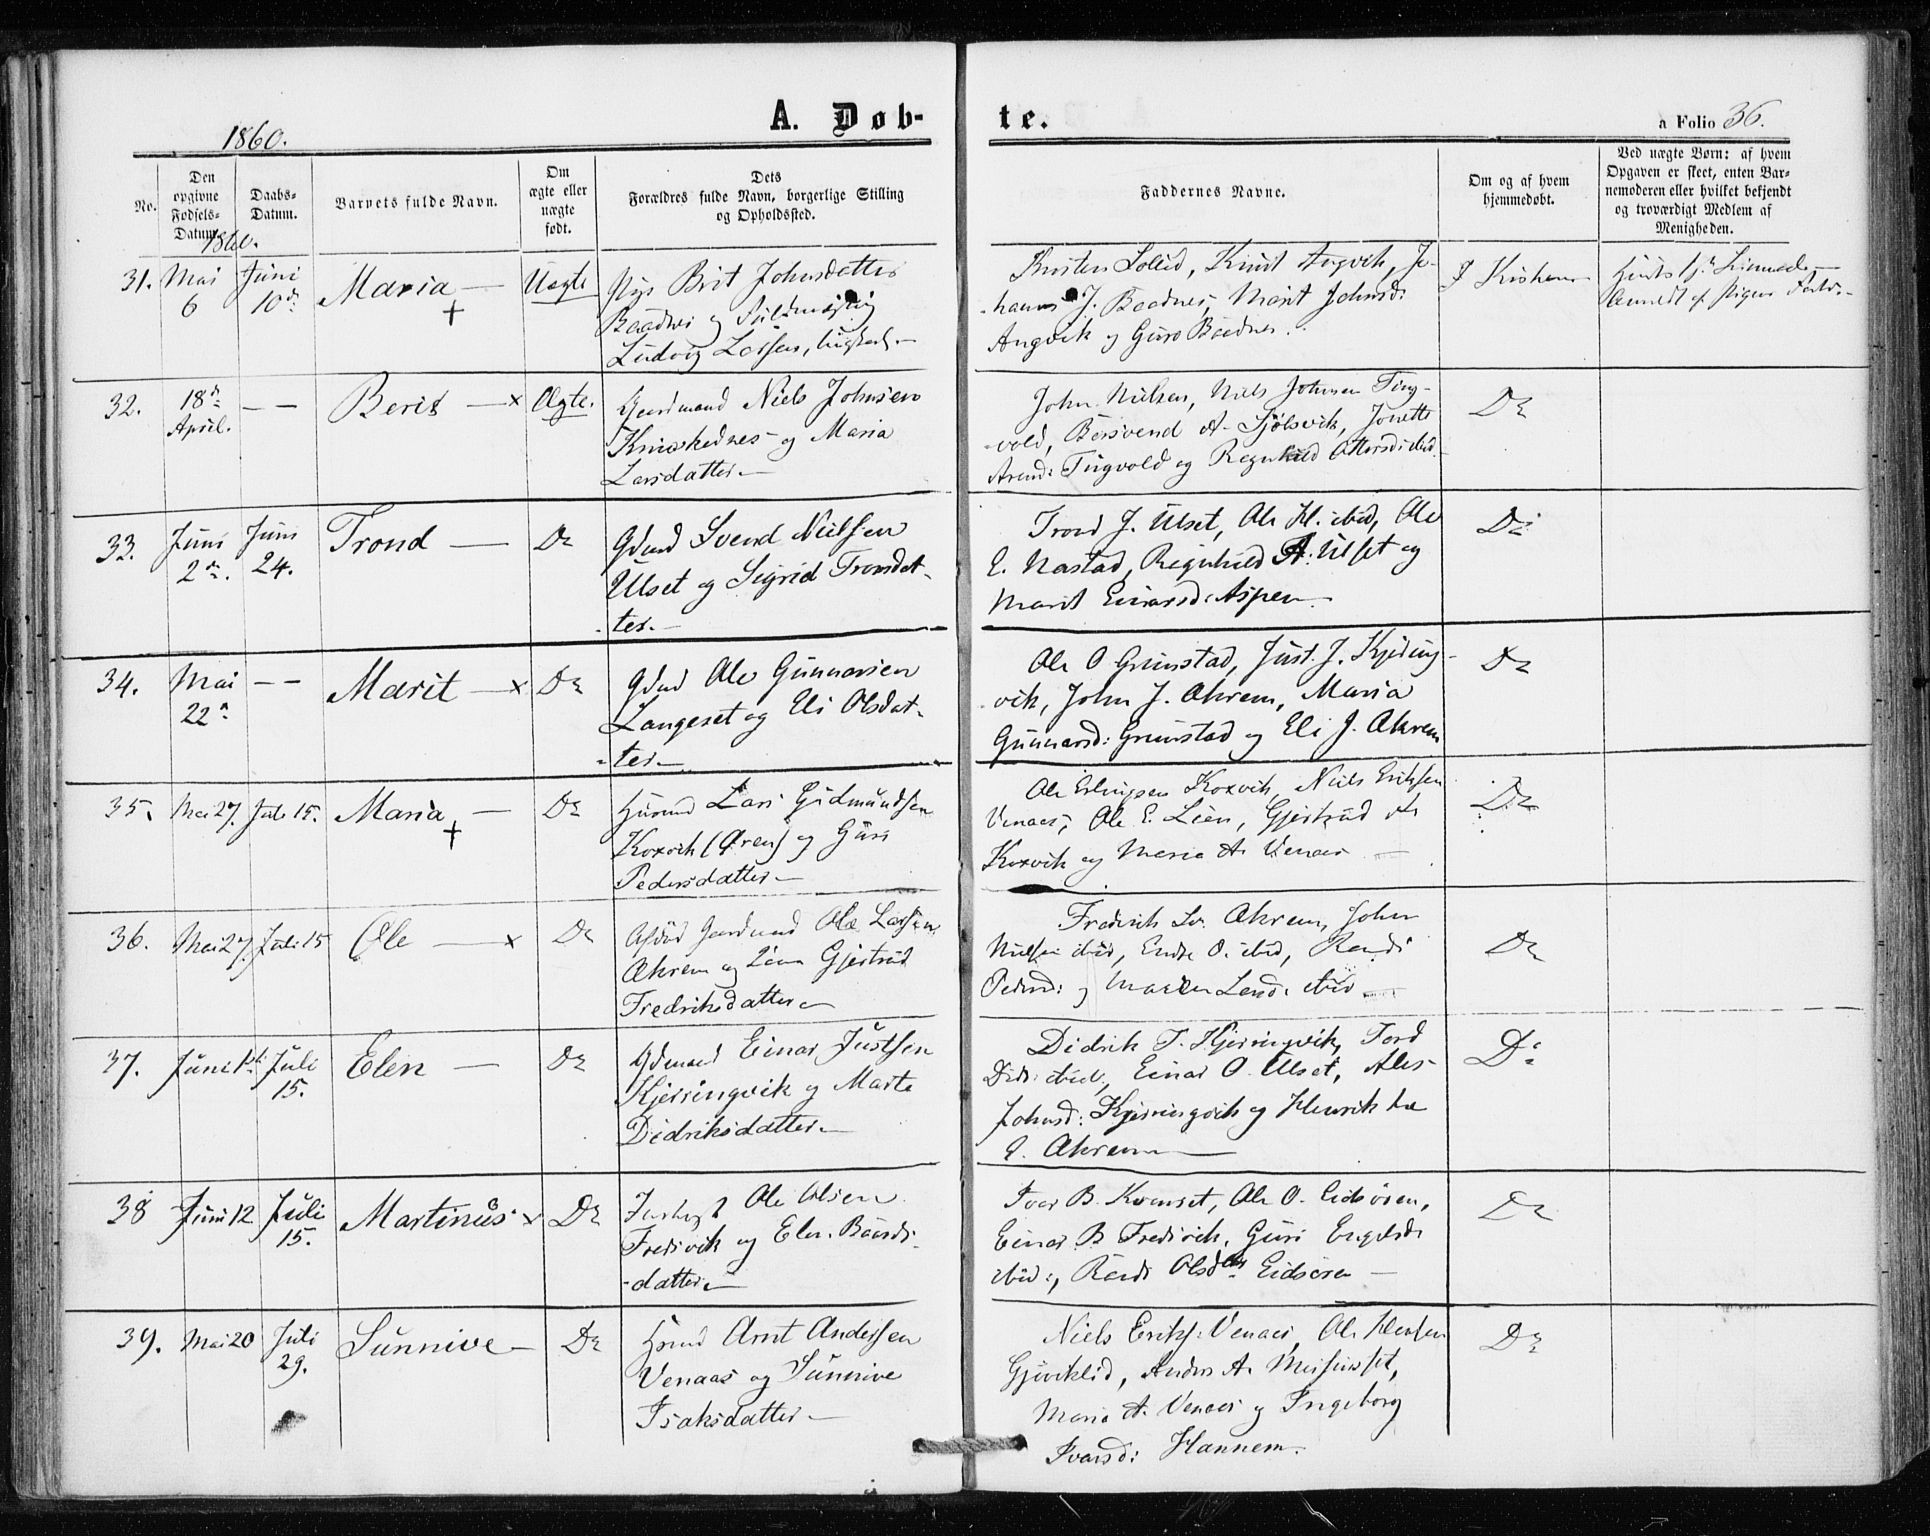 1860.
A. Døb-
te.
a Folio 36.
No.
Den
opgivne
Fødsels-
Datum.
Daabs-
Datum.
Barnets fulde Navn.
Om
ægte eller
uægte
født.
Dets
Forældres fulde Navn, borgerlige Stilling
og Opholdssted.
Faddernes Navne.
Om og af hvem
hjemmedøbt.
Ved uægte Børn: af hvem
Opgaven er skeet, enten Bar-
nemoderen eller hvilket bekjendt
og troværdigt Medlem af
Menigheden.
1860.
31. Mai
6
Juni
10de
Maria —
+
Uægte
Pige Brit Johnsdatter
Baadnes og
Ludvig Larsen,
Sollid, Knud Angvik, Jo-
hannes J. Baadnes, Marit Johnsd:
Angvik og Guro Baadnes.
I Kirken
32. 18de
April.
— —
Berit —x
Ægte.
Gaardmand Niels Johnsen
og Maria
Larsdatter —
John Nielsen, Niels Johnsen Ting-
vold, A. Sjølsvik,
Arend: Tingvold og Regnhild ibid.
Do
33. Juni
2den.
Juni
24.
Trond —
Do
Gdmd Svend Nielsen
Ulset og Sigrid Trondsdat-
-ter. —
Trond J. Ulset, Ole H. ibid, Ole
E. Nastad, Regnhild A. Ulset og
Marit Einarsd: Aspen —
Do
34. Mai
22n
— —
Marit —x
Do
Gdmd Ole Gunnarsen
Langeset og Eli Olsdat-
-ter —
Ole O Grimstad, Just. J. Kjering-
vik, John J. Akrem, Maria
Gunnarsd: Grimstad og Eli J. Akrem
Do
35. Mai 27. Juli 15.
Maria —
+
Do
Husmd Lars Gudmundsen
Koxvik (Øren) og Guri
Pedersdatter —
Ole Erlingsen Koxvik, Niels Eriksen
Venaes, Ole E. Lien, Gjertrud
Koxvik og Maria A. Venaes —
Do
36. Mai 27. Juli 15
Ole —x
Do
Ole Larsen
Akrem og Gjertrud
Fredriksdatter —
Fredrik Akrem, John
Nielsen ibid, Endre O. ibid, Randi
Pedersd: og ibid —
Do
37. Juni 1st. Juli
15.
Elen —
Do
Gdmand Einar Justsen
Kjerringvik og Marte
Didriksdatter —
Didrik T. Kjerringvik, Tord
ibid., Einar O. Ulset,
Johnsd: Kjerringvik og Henrikke
E. Akrem —
Do
38 Juni 12. Juli
15.
Martinus x
Do
Ole Olsen
Fredsvik og Elen Baards-
-datter —
Ivar B. Kvenset, Ole O. Eidsøren,
Einar B Fredsvik, Guri
ibid:, Randi Olsdatter Eidsøren —
Do
39. Mai 20 Juli
29.
Sunnive —
Do
Hsmd Arnt Andersen
Venaas og Sunnive
Isaksdatter —
Niels Eriks: Venaes, Ole
Anders A.
Maria A. Venaes og Ingeborg
Ivarsd: Hannem.
Do